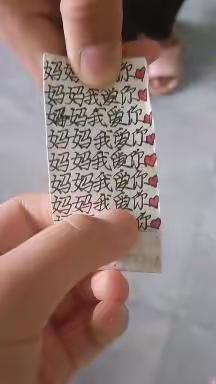 妈妈我爱你
妈妈我爱你
妈妈我爱你
妈妈我爱你
妈妈我爱你
妈妈我爱你
妈妈我爱你
你